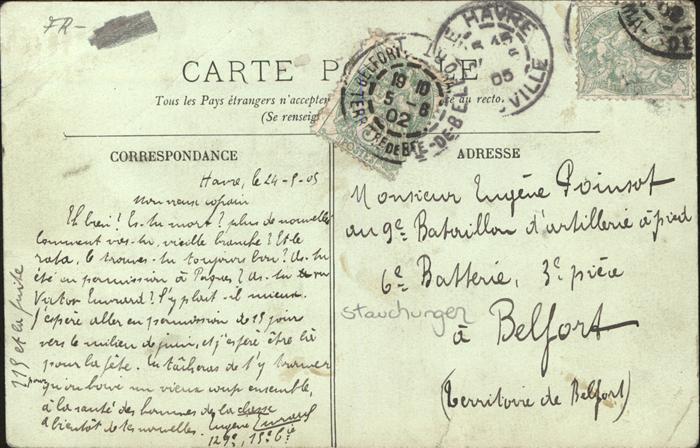 FR-
CARTE P
Tous les Pays étrangers n'accepten au recto.
(Se renseig
BELFORT
18 10
5 -6
02
TERRRE DE BEL
LE HAVRE
05
VILLE
POSTES
CORRESPONDANCE
ADRESSE
Havre, le 24-5-05
Mon vieux copain
Eh bien! Es-tu mort? plus de nouvelles
comment vas-tu, vieille branche? Et le
rata, le trouves-tu toujours bon? As-tu
été en permission à Pâques? As-tu vu
Victor Evrard? S'y plait-il mieux.
J'espère aller en permission de 15 jours
vers le milieu de juin, et j'espère être là
pour la fête. Tu tâcheras de t'y trouver
pour qu'on boive un vieux coup ensemble,
à la santé des hommes de la classe
A bientôt de tes nouvelles. Eugène
129e, 15e Cie
119 et la fuite
Monsieur Eugène Poinsot
au 9e Bataillon d'artillerie à pied
6e Batterie, 3e pièce
stauchungen
à Belfort
(Territoire de Belfort)